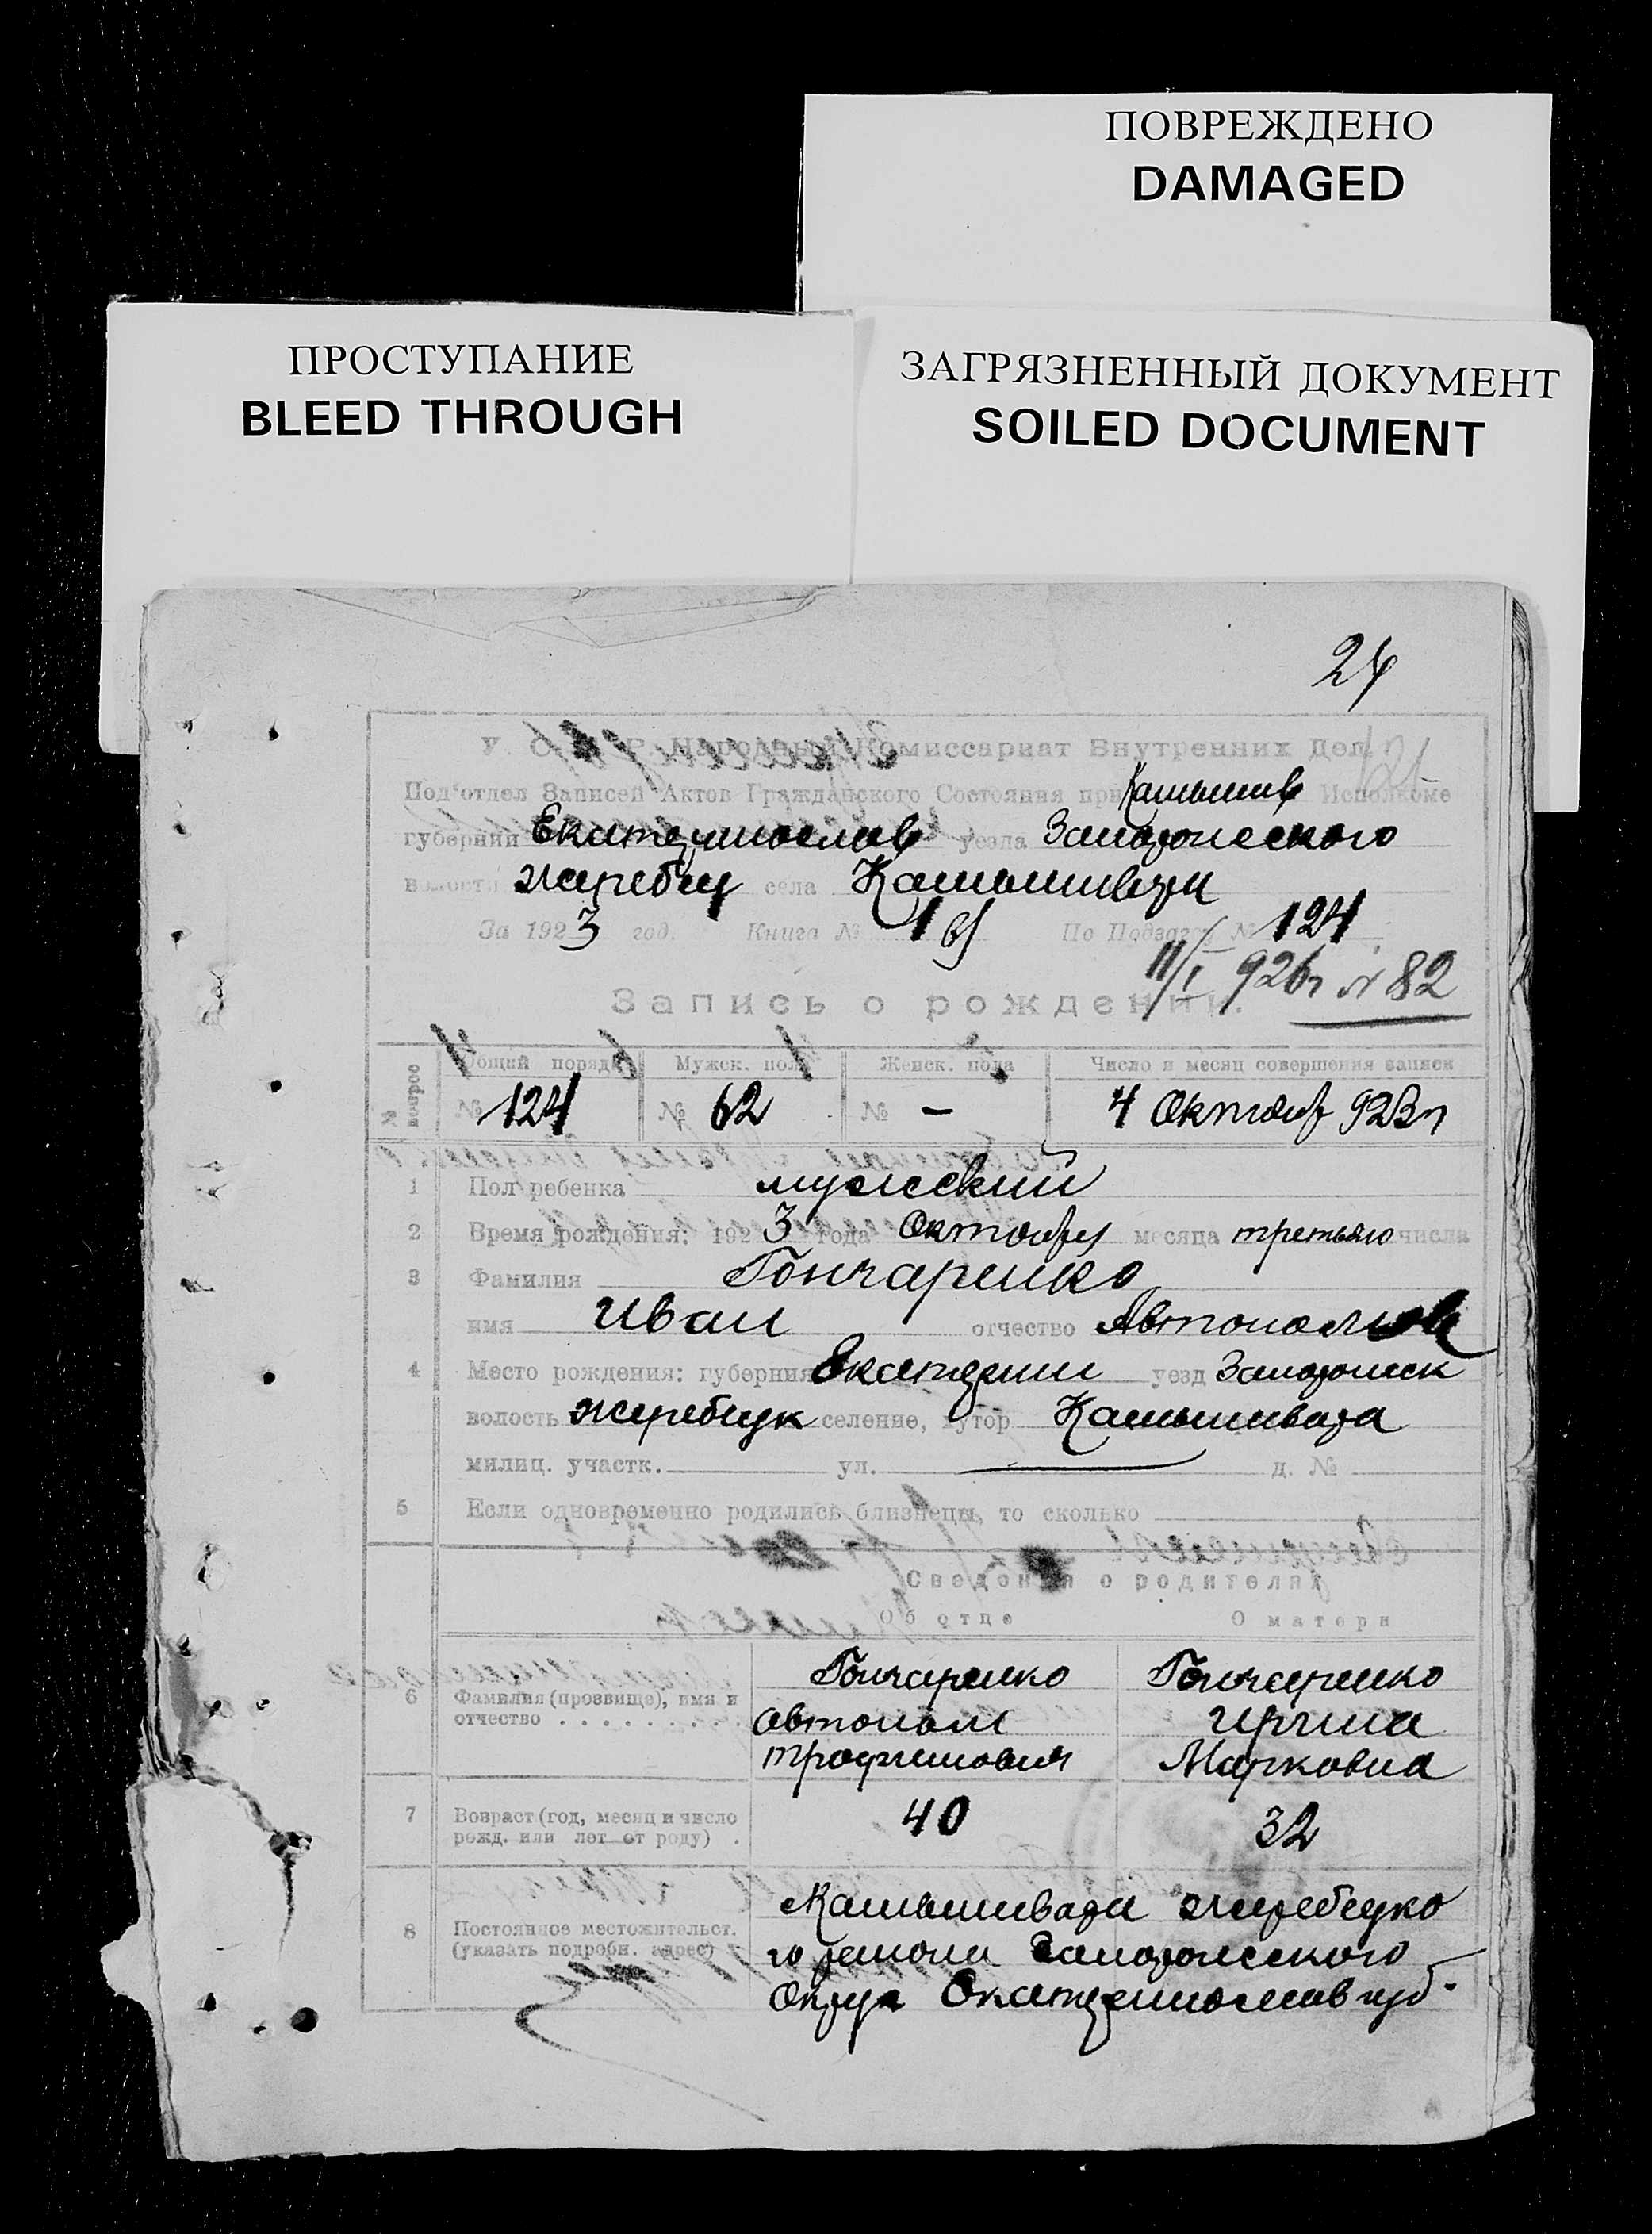 ПОВРЕЖДЕНО
DAMAGED
ПРОСТУПАНИЕ
BLEED THROUGH
ЗАГРЯЗНЕННЫЙ ДОКУМЕНТ
SOILED DOCUMENT
24
У. С. С. Р. Народный Комиссариат Внутренних Дел
Под'отдел Записей Актов Гражданского Состояния при Камышев Исполкоме
губернии Екатеринослав уезда Запорожеского
волости Жеребец села Камышивахи
За 1923 год. Книга № 1 По Подзагсу № 124
11/I 926г № 82
Запись о рождении.
№ вопрос Общий порядк. Мужск. пола Женск. пола Число и месяц совершения записи
№ 124 № 62 № – 4 Октябр 923г
1 Пол ребенка мужский
2 Время рождения: 1923 года Октября месяца третьяго числа
3 Фамилия Гончаренко
имя Иван отчество Автономов
4 Место рождения: губерния Екатерин уезд Запорожск
волость Жеребецк селение, хутор Камышиваха
милиц. участк. ул. д. №
5 Если одновременно родились близнецы, то сколько
Сведения о родителях
Об отце О матери
6 Фамилия (прозвище), имя и отчество Гончаренко Гончаренко
Автоном Ирина
Трофимович Марковна
7 Возраст (год, месяц и число рожд. или лет от роду) . 40 32
8 Постоянное местожительст. (указать подробн. адрес) Камышиваха Жеребецко
го района Запорожеского
Округа Екатеринослав губ.